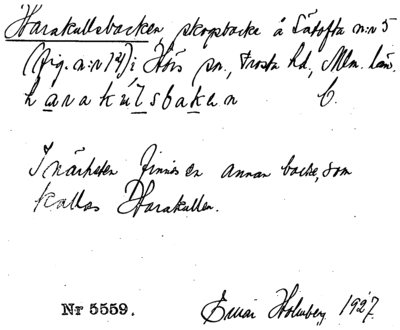 Harakullsbacken, skogsbacke å Sätofta n:r 5
(fig. n:r 12) i Hörs sn., Frosta hd, Mlm. län.
harakúlsbaken
I närheten finnes en annan backe, som
kallas Harakullen.
Nr 5559. Einar Holmberg 1927.